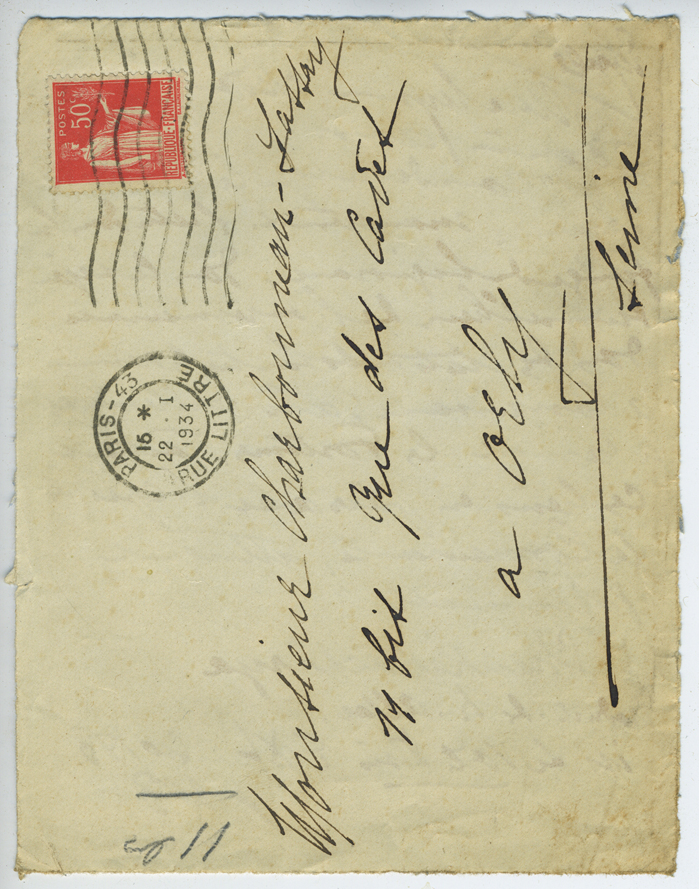 POSTES
50c
REPUBLIQUE FRANCAISE
PARIS-43
15 *
22 · I
1934
RUE LITTRE
Monsieur Charbonneau-Lassay
bis Rue des
a Orly
Seine